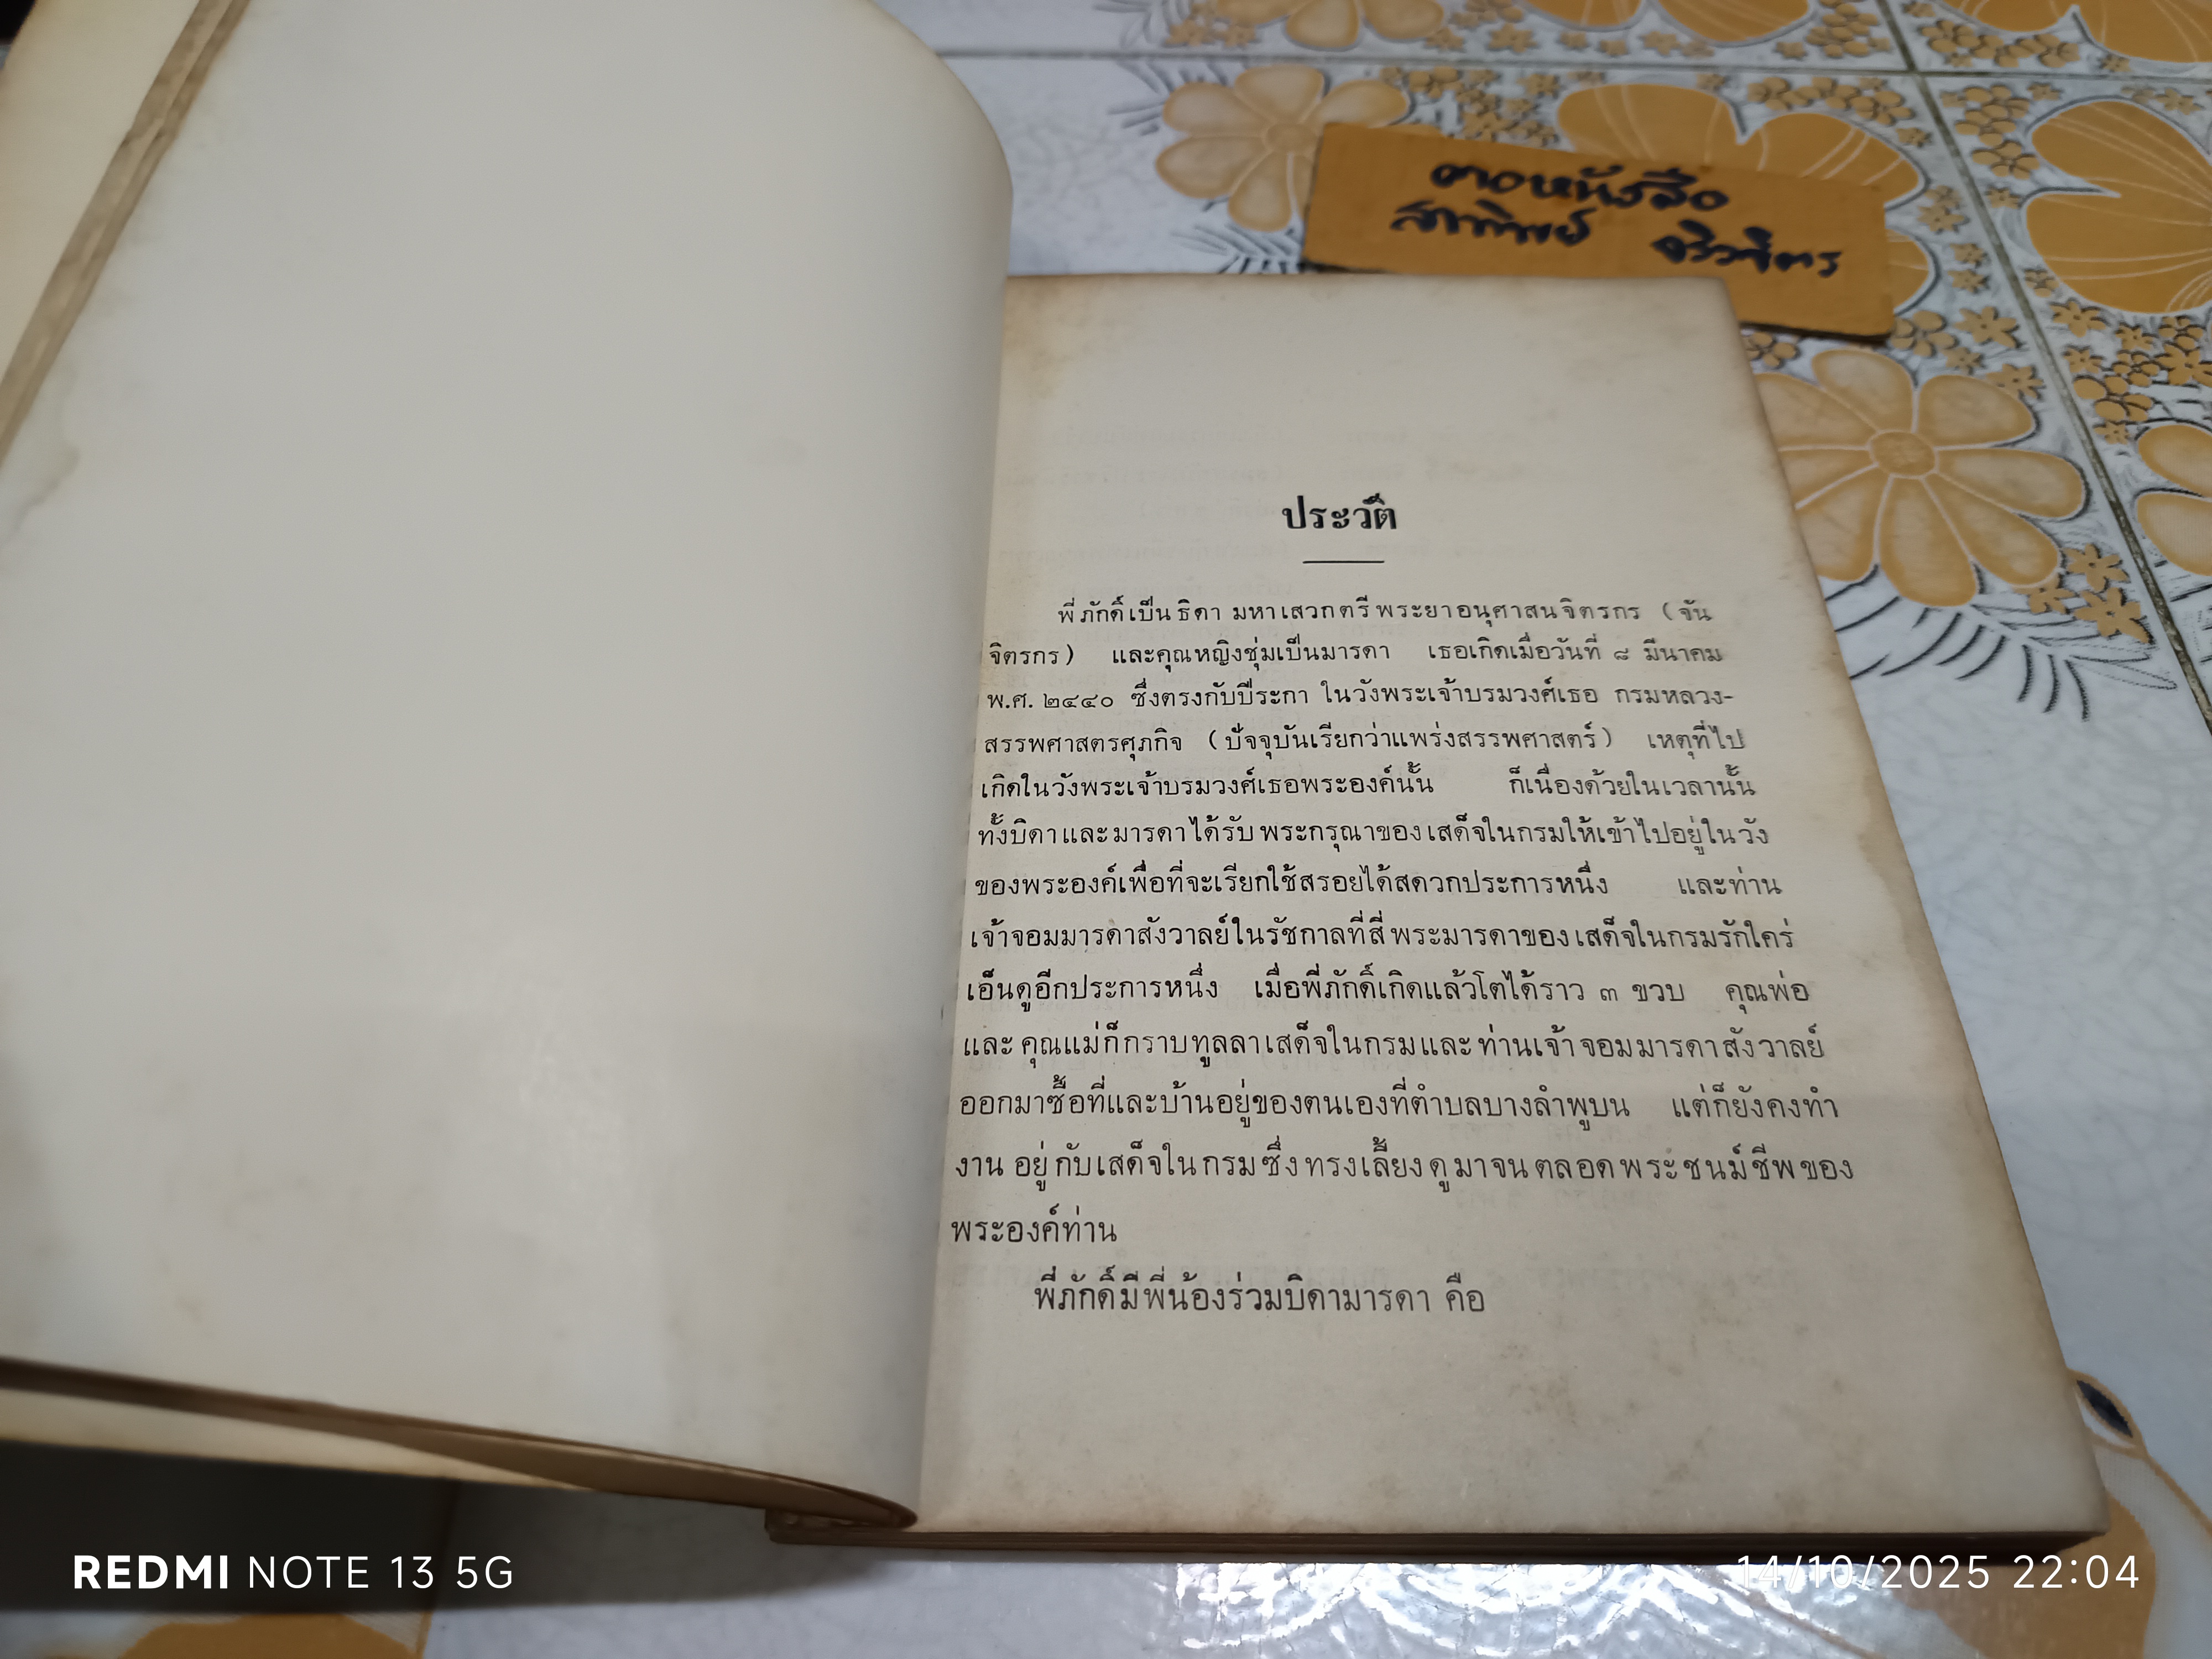 ประวัติ
พี่ภักดิ์เป็นธิดา มหาเสวกตรีพระยาอนุศาสนจิตรกร (จัน
จิตรกร) และคุณหญิงชุ่มเป็นมารดา เธอเกิดเมื่อวันที่ ๘ มีนาคม
พ.ศ. ๒๔๔๐ ซึ่งตรงกับปีระกา ในวังพระเจ้าบรมวงศ์เธอ กรมหลวง-
สรรพศาสตรศุภกิจ (ปัจจุบันเรียกว่าแพร่งสรรพศาสตร์) เหตุที่ไป
เกิดในวังพระเจ้าบรมวงศ์เธอพระองค์นั้น ก็เนื่องด้วยในเวลานั้น
ทั้งบิดาและมารดาได้รับพระกรุณาของเสด็จในกรมให้เข้าไปอยู่ในวัง
ของพระองค์เพื่อที่จะเรียกใช้สรอยได้สดวกประการหนึ่ง และท่าน
เจ้าจอมมารดาสังวาลย์ในรัชกาลที่สี่พระมารดาของเสด็จในกรมรักใคร่
เอ็นดูอีกประการหนึ่ง เมื่อพี่ภักดิ์เกิดแล้วโตได้ราว ๓ ขวบ คุณพ่อ
และคุณแม่ก็กราบทูลลาเสด็จในกรมและท่านเจ้าจอมมารดาสังวาลย์
ออกมาซื้อที่และบ้านอยู่ของตนเองที่ตำบลบางลำพูบน แต่ก็ยังคงทำ
งานอยู่กับเสด็จในกรมซึ่งทรงเลี้ยงดูมาจนตลอดพระชนม์ชีพของ
พระองค์ท่าน
พี่ภักดิ์มีพี่น้องร่วมบิดามารดา คือ
REDMI NOTE 13 5G
14/10/2025 22:04